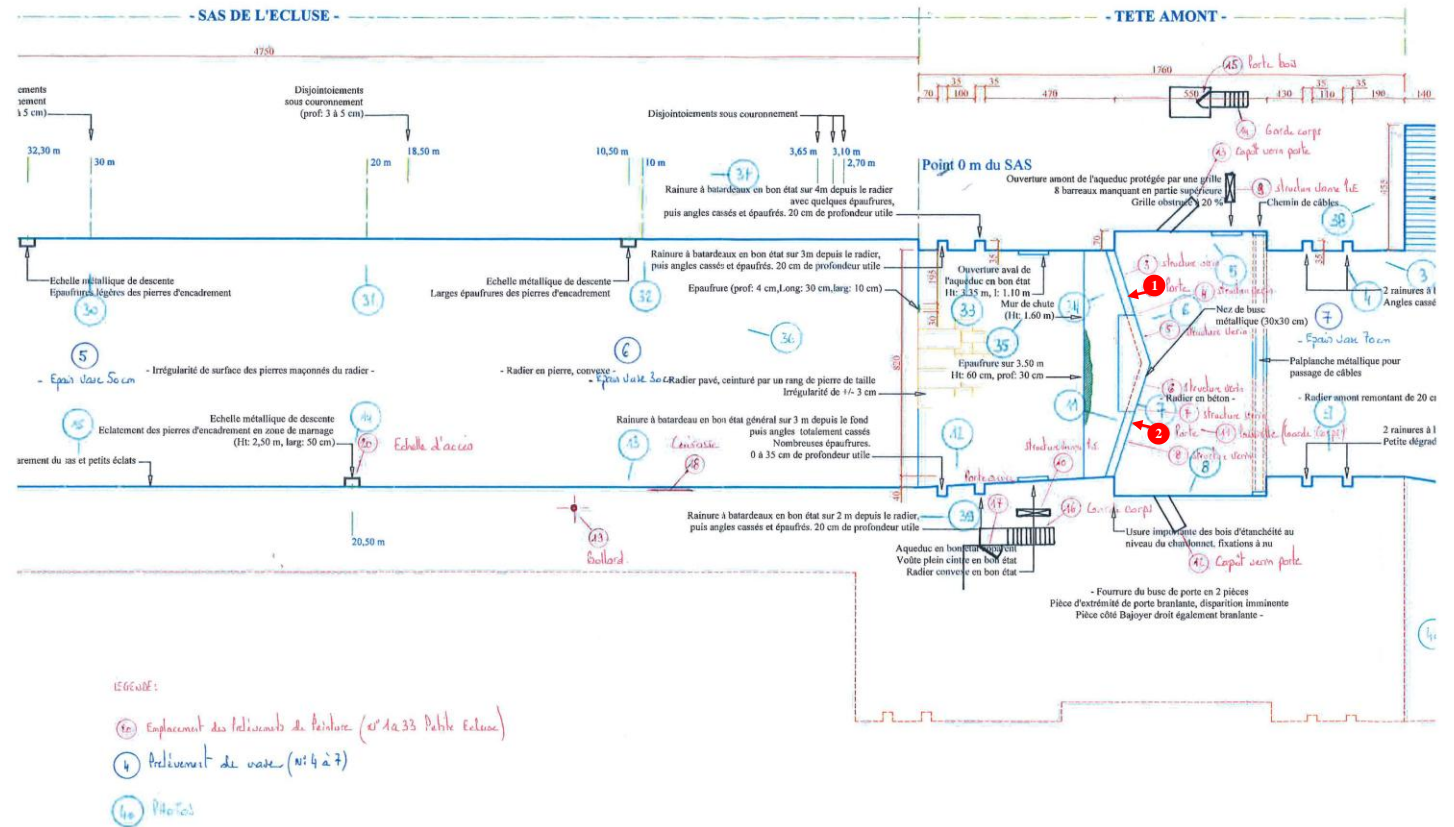 - SAS DE L'ECLUSE -
- TETE AMONT -
4750
1760
35
35
70
100
470
550
430
35
110
35
190
140
15 Porte bois
14 Garde corps
13 Capôt verin porte
ements
nement
à 5 cm)
Disjointoiements
sous couronnement
(prof: 3 à 5 cm)
Disjointoiements sous couronnement
32,30 m
30 m
20 m
18,50 m
10,50 m
10 m
3,65 m
3,10 m
2,70 m
Point 0 m du SAS
37
Rainure à batardeaux en bon état sur 4m depuis le radier
avec quelques épaufrures,
puis angles cassés et épaufrés. 20 cm de profondeur utile
Ouverture amont de l'aqueduc protégée par une grille
8 barreaux manquant en partie supérieure
Grille obstruée à 20 %
Chemin de câbles
38
455
70
35
35
Echelle métallique de descente
Epaufrures légères des pierres d'encadrement
30
31
Echelle métallique de descente
Larges épaufrures des pierres d'encadrement
32
Rainure à batardeaux en bon état sur 3m depuis le radier,
puis angles cassés et épaufrés. 20 cm de profondeur utile
Epaufrure (prof: 4 cm,Long: 30 cm,larg: 10 cm)
195
30
820
33
Ouverture aval de
l'aqueduc en bon état
Ht: 1.35 m, l: 1.10 m
Mur de chute
(Ht: 1.60 m)
34
35
36
1
Porte
5
6
5 structure verin
Nez de busc
métallique (30x30 cm)
3
4
2 rainures à l
Angles cassé
7
- Epais vase 70 cm
5
- Epais vase 50 cm
- Irrégularité de surface des pierres maçonnés du radier -
6
- Radier en pierre, convexe -
- Epais vase 30 cm
Radier pavé, ceinturé par un rang de pierre de taille
Irrégularité de +/- 3 cm
Epaufrure sur 3.50 m
Ht: 60 cm, prof: 30 cm
Palplanche métallique pour
passage de câbles
6 structure verin
- Radier en béton -
7 structure verin
- Radier amont remontant de 20 c
15
Echelle métallique de descente
Eclatement des pierres d'encadrement en zone de marnage
(Ht: 2,50 m, larg: 50 cm)
14
20 Echelle d'accés
13
18
Rainure à batardeau en bon état général sur 3 m depuis le fond
puis angles totalement cassés
Nombreuses épaufrures.
0 à 35 cm de profondeur utile
12
11
7
2
Porte
8 structure verin
8
9
2 rainures à l
Petite dégrad
arement du sas et petits éclats
40
20,50 m
13
Bollard
Rainure à batardeaux en bon état sur 2 m depuis le radier,
puis angles cassés et épaufrés. 20 cm de profondeur utile
39
17
16 Garde corps
Aqueduc en bon état apparent
Voûte plein cintre en bon état
Radier convexe en bon état
Usure importante des bois d'étanchéité au
niveau du chardonnet, fixations à nu
12 Capôt verin porte
- Fourrure du busc de porte en 2 pièces
Pièce d'extrémité de porte branlante, disparition imminente
Pièce côté Bajoyer droit également branlante -
LEGENDE:
Emplacement des Prélèvements de Peinture (N° 1 à 33 Petite Ecluse)
4 Prélèvement de vase (N: 4 à 7)
40 PHOTOS